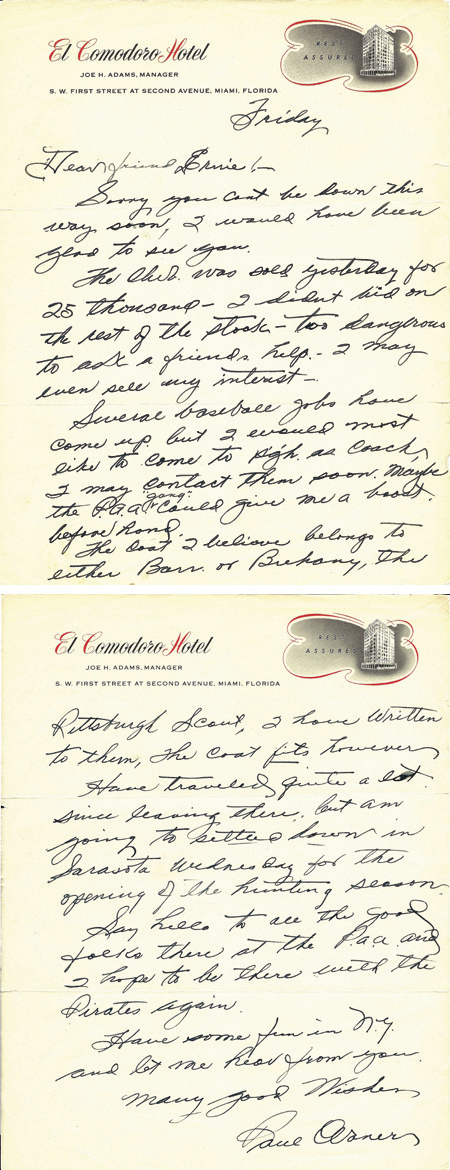 El Comodoro Hotel
JOE H. ADAMS, MANAGER
S. W. FIRST STREET AT SECOND AVENUE, MIAMI, FLORIDA
REST
ASSURED
Friday
Dear friend Ernie!-
Sorry you cant be down this
way soon, I would have been
glad to see you.
The Club. was sold yesterday for
25 thousand- I didnt bid on
the rest of the stock- too dangerous
to ask a friends help.- I may
even sell my interest-
Several baseball jobs have
come up, but I would most
like to come to Pgh. as Coach,
I may contact them soon. Maybe
the P.a.a "gang" could give me a boost
before hand.
The Coat I believe belongs to
either Barr. or Brehany, the
El Comodoro Hotel
JOE H. ADAMS, MANAGER
S. W. FIRST STREET AT SECOND AVENUE, MIAMI, FLORIDA
REST
ASSURED
Pittsburgh Scout, I have Written
to them, the coat fits however,
Have traveled quite a lot
since leaving there, but am
going to down in
Sarasota Wednesday for the
opening of the hunting season.
Say hello to all the good
folks there at the P.a.a. and
I hope to be there with the
Pirates again.
Have some fun in N.Y.
and let me hear from you.
many good Wishes
Paul